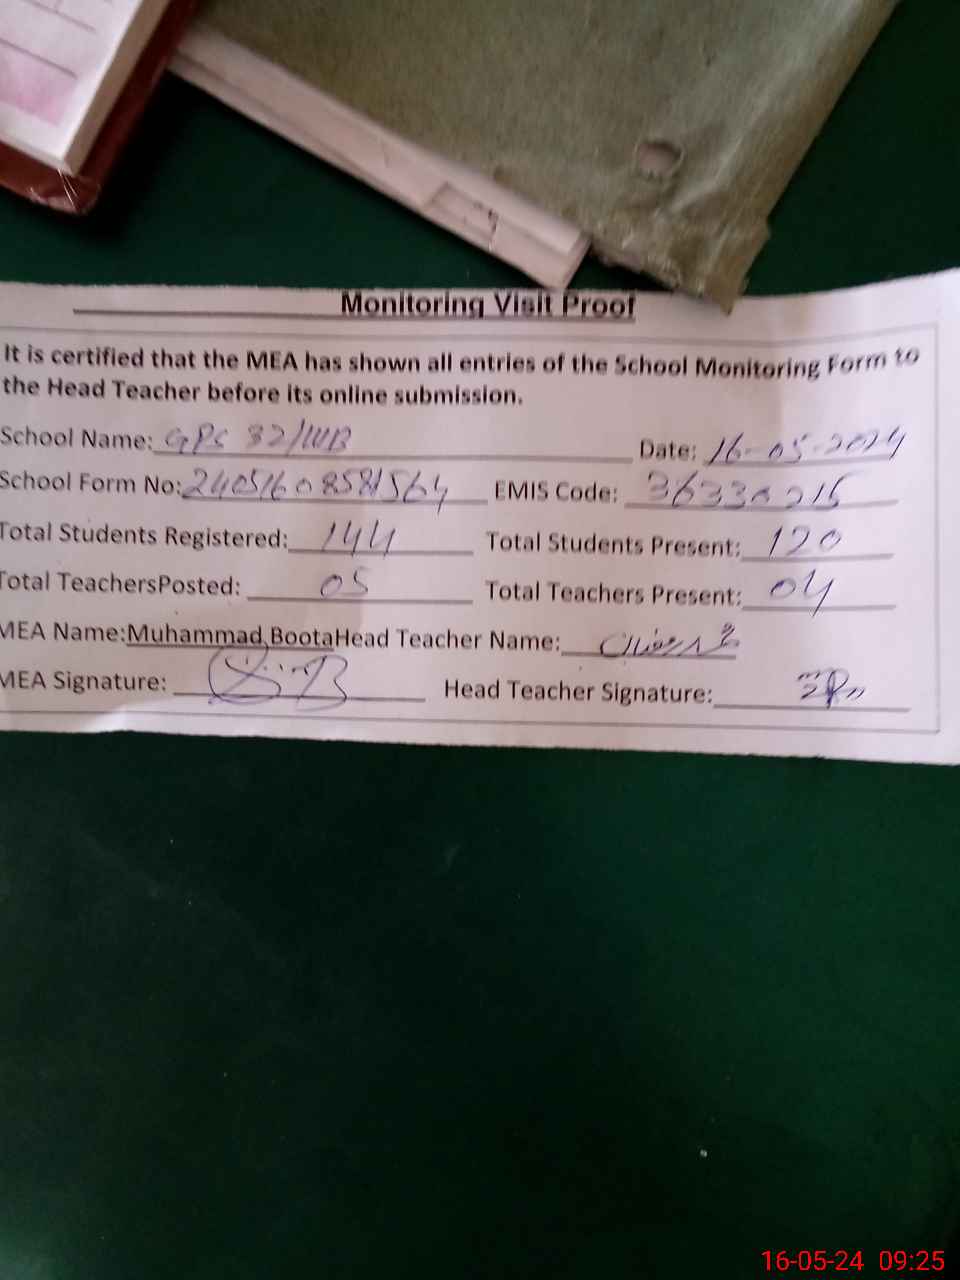 Monitoring Visit Proof
It is certified that the MEA has shown all entries of the School Monitoring Form to
the Head Teacher before its online submission.
School Name: GPS 82/WB Date: 16-05-2024
School Form No: 24051608581564 EMIS Code: 36330215
Total Students Registered: 144 Total Students Present: 120
Total TeachersPosted: 05 Total Teachers Present: 04
MEA Name:Muhammad BootaHead Teacher Name: محمد رمضان
MEA Signature: Head Teacher Signature:
16-05-24 09:25